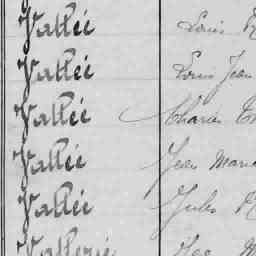 Vallée Louis
Vallée Louis Jean
Vallée Charles
Vallée Jean Marie
Vallée Jules
Vallerie